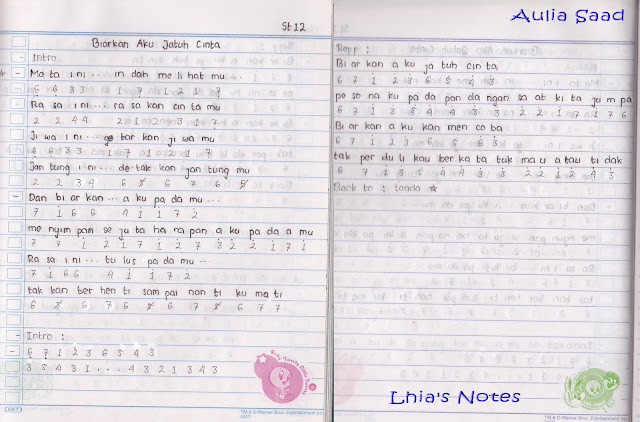 St 12
Biarkan Aku Jatuh Cinta
- Intro
- Ma ta i ni ... in dah me li hat mu ...
6 6 3 3 1 7 1 2 1 7
Ra sa i ni ... ra sa kan cin ta mu
2 2 4 4 2 1 2 3 1 7
Ji wa i ni ... ge tar kan ji wa mu
6 6 3 3 1 7 1 2 1 7
Jan tung i ni ... de tak kan jan tung mu
2 2 3 4 6 5 6 7 6 5
- Dan bi ar kan ... a ku pa da mu ...
7 i 6 6 4 i i 7 2
me nyim pan se ju ta ha ra pan a ku pa da a mu
7 7 i 2 i 7 i 2 7 3 2 2 i 7 i
Ra sa i ni ... tu lus pa da mu ...
7 i 6 6 4 i i 7 2
tak kan ber hen ti sam pai nan ti ku ma ti
- Intro :
- 6 7 1 2 3 6 5 4 3
3 5 4 3 1 . . . 4 3 2 1 3 4 3
Aulia Saad
Reff :
Bi ar kan a ku ja tuh cin ta
6 7 1 2 3 6 5 4 3
pe so na ku pa da pan da ngan sa at ki ta jum pa
Bi ar kan a ku kan men co ba
6 7 1 2 3 6 5 6 3
tak per du li kau ber ka ta tuk ma u a tau ti dak
Back to : tanda ☆
Lhia's Notes